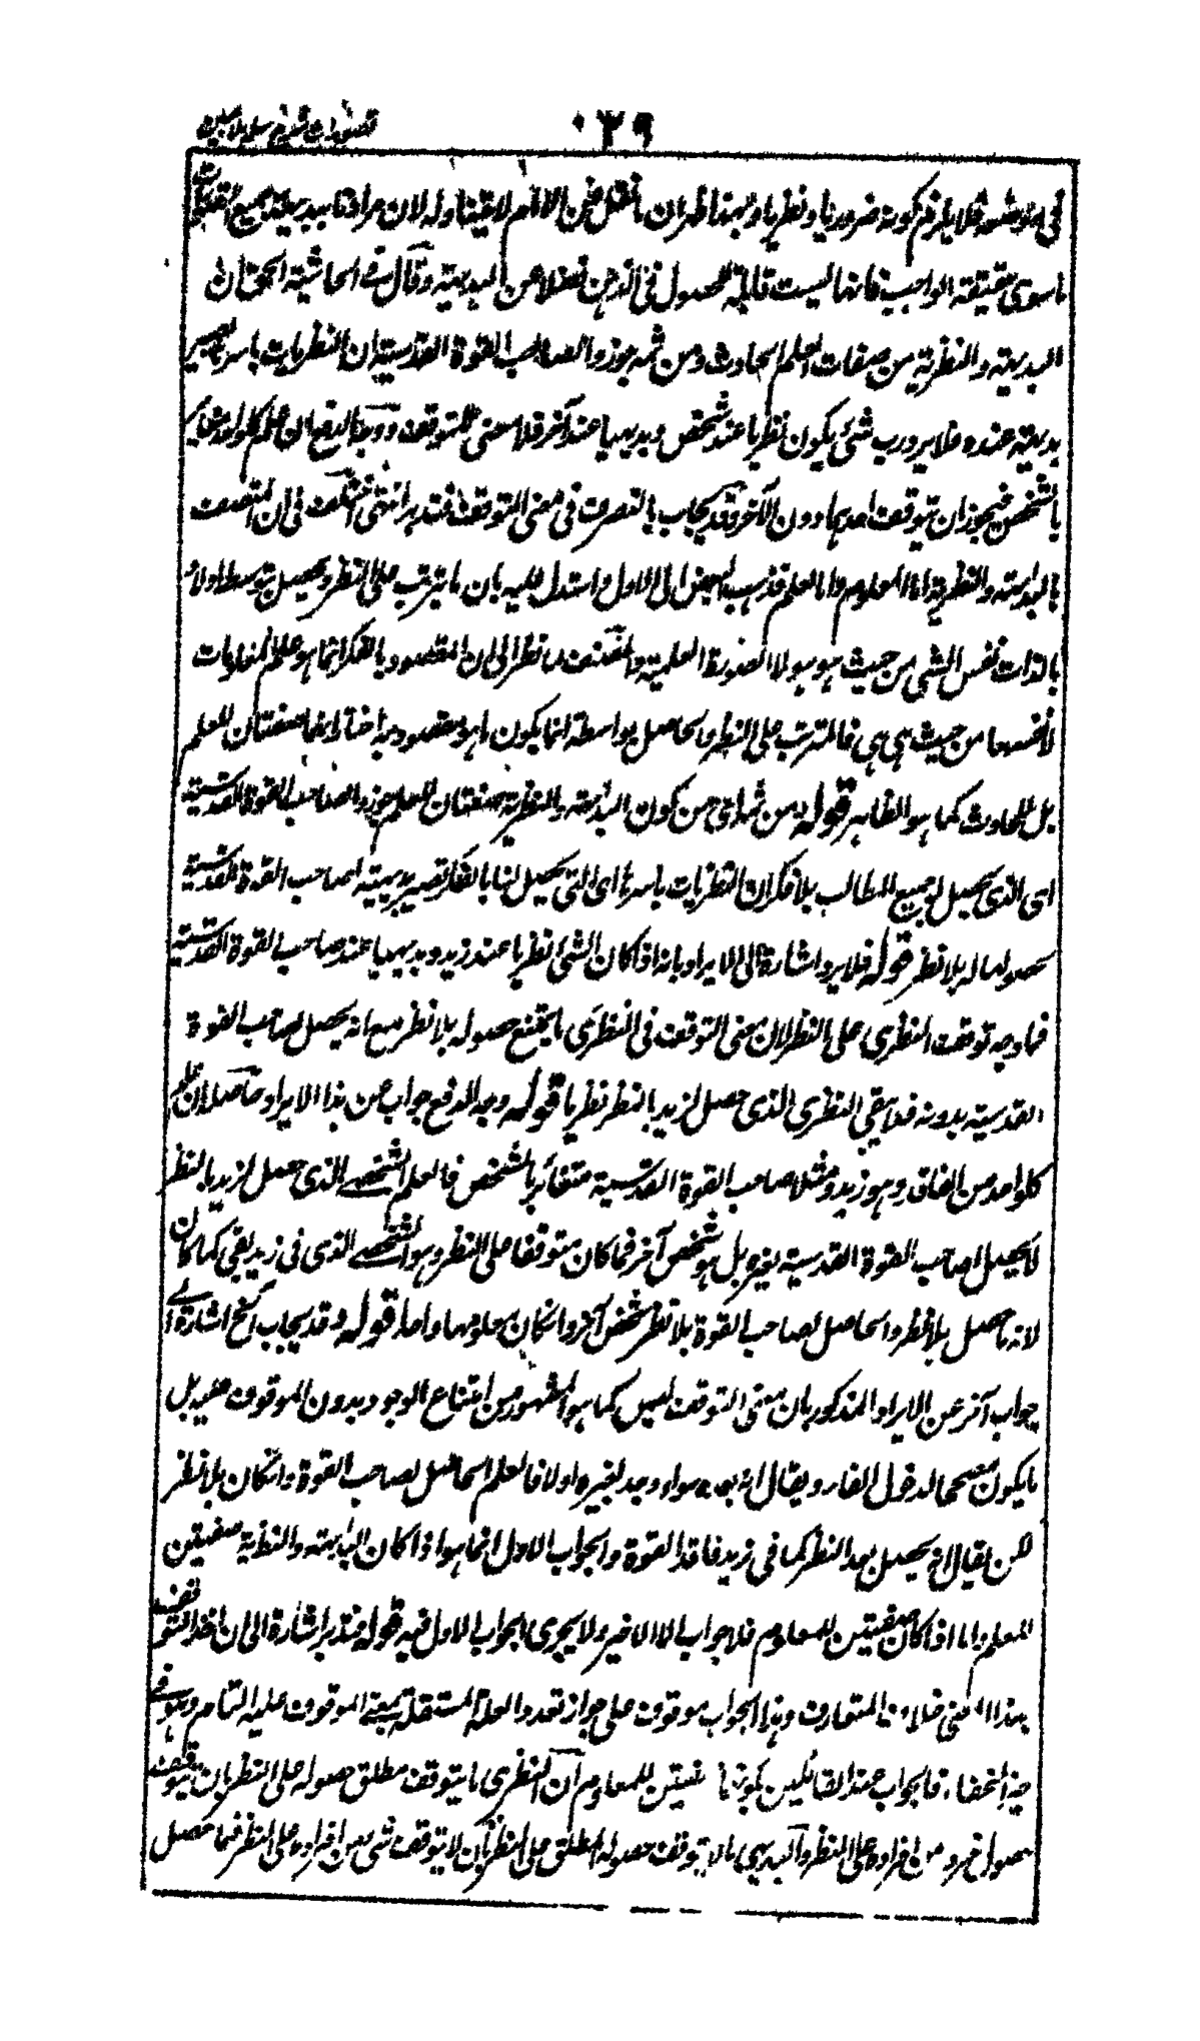 ٠٣٩
في موضعه فلا يلزم كونه ضروريا ونظريا وبهذا ظهر ان ما نقل عن الامام لا يقينا وله لان مراده ببديهية جميع
ما سوى حقيقة الواجب فانها ليست قابلة للحصول في الذهن فضلا عن البديهية وقال في الحاشية الحق ان
البديهية والنظرية من صفات العلم الحادث ومن ثمه جوزوا لصاحب القوة القدسية ان النظريات باسرها تصير
بديهية عنده فلا يرد رب شئ يكون نظريا عند شخص وبديهيا عند آخر فلا معنى للتوقف ووجه الدفع ان علم كلواحد مغاير
بالشخص فيجوز ان يتوقف احدهما دون الآخر وقد يجاب بالتصرف في معنى التوقف فتدبر انتهى اختلف في ان المتصف
بالبداهة والنظرية اما المعلوم واما العلم فذهب البعض الى الاول واستدل عليه بان ما يترتب على النظر ويحصل بتوسطه اولا
بالذات نفس الشئ من حيث هو هو لا الصورة العلمية والمصنف لما نظر الى ان المقصود بالفكر انما هو علم المعلومات
لا نفسها من حيث هي هي فالمترتب على النظر والحاصل بواسطة انما يكون ما هو مقصود منه اختار انهما صفتان للعلم
بل للحادث كما هو الظاهر قوله ومن ثم اى من كون البداهة والنظرية صفتان للعلم جوزوا لصاحب القوة القدسية
اى الذى يحصل له جميع المطالب بلا فكر ان النظريات باسرها اى التى يحصل لنا بالفكر تصير بديهية لصاحب القوة القدسية
لحصولها له بلا نظر قوله فلا يرد اشارة الى الايراد بانه اذا كان الشئ نظريا عند زيد وبديهيا عند صاحب القوة القدسية
فما وجه توقف النظرى على النظر لان معنى التوقف في النظرى ما يمتنع حصوله بلا نظر مع انه يحصل لصاحب القوة
القدسية بدونه فلا يبقى النظرى الذى حصل لزيد بالنظر نظريا قوله وجه الدفع جواب عن هذا الايراد حاصله ان علم
كلواحد من الفاقد وهو زيد مثلا وصاحب القوة القدسية متغائر بالشخص فالعلم الشخصے الذى حصل لزيد بالنظر
لا يحصل لصاحب القوة القدسية بغيره بل هو شخص آخر فما كان متوقفا على النظر وهو الشخصے الذى فى زيد بقى كما كان
لانه ما حصل بلا نظر والحاصل لصاحب القوة بلا نظر شخص آخر وان كان معلومهما واحدا قوله وقد يجاب آلخ اشارة الے
جواب آخر عن الايراد المذكور بان معنى التوقف ليس كما هو المشهور من امتناع الوجود بدون الموقوف عليه بل
ما يكون مصححا لدخول الفاء ويقال انه بعده سواء وجد لغيره اولا فالعلم الحاصل لصاحب القوة وانكان بلا نظر
لكن يقال انه يحصل بعد النظر كما فى زيد فاقد القوة والجواب الاول انما هو اذا كان البداهة والنظرية صفتين
للعلم واما اذا كان صفتين للمعلوم فلا جواب الا الاخير ولا يجرى الجواب الاول فيه قوله فتدبر اشارة الى ان اخذ التوقف
بهذا المعنى خلاف المتعارف وهذا الجواب موقوف على جواز تعدد العلة المستقلة بمعنى الموقوف عليه التام وهو فے
حيز الخفاء فالجواب عند القائلين بكونهما صفتين للمعلوم ان النظرى ما يتوقف مطلق حصوله على النظر بان يتوقف
حصول فرد من افراده على النظر والبديهى ما لا يتوقف حصوله المطلق على النظر بان لا يتوقف شئ من افراده على النظر فما حصل